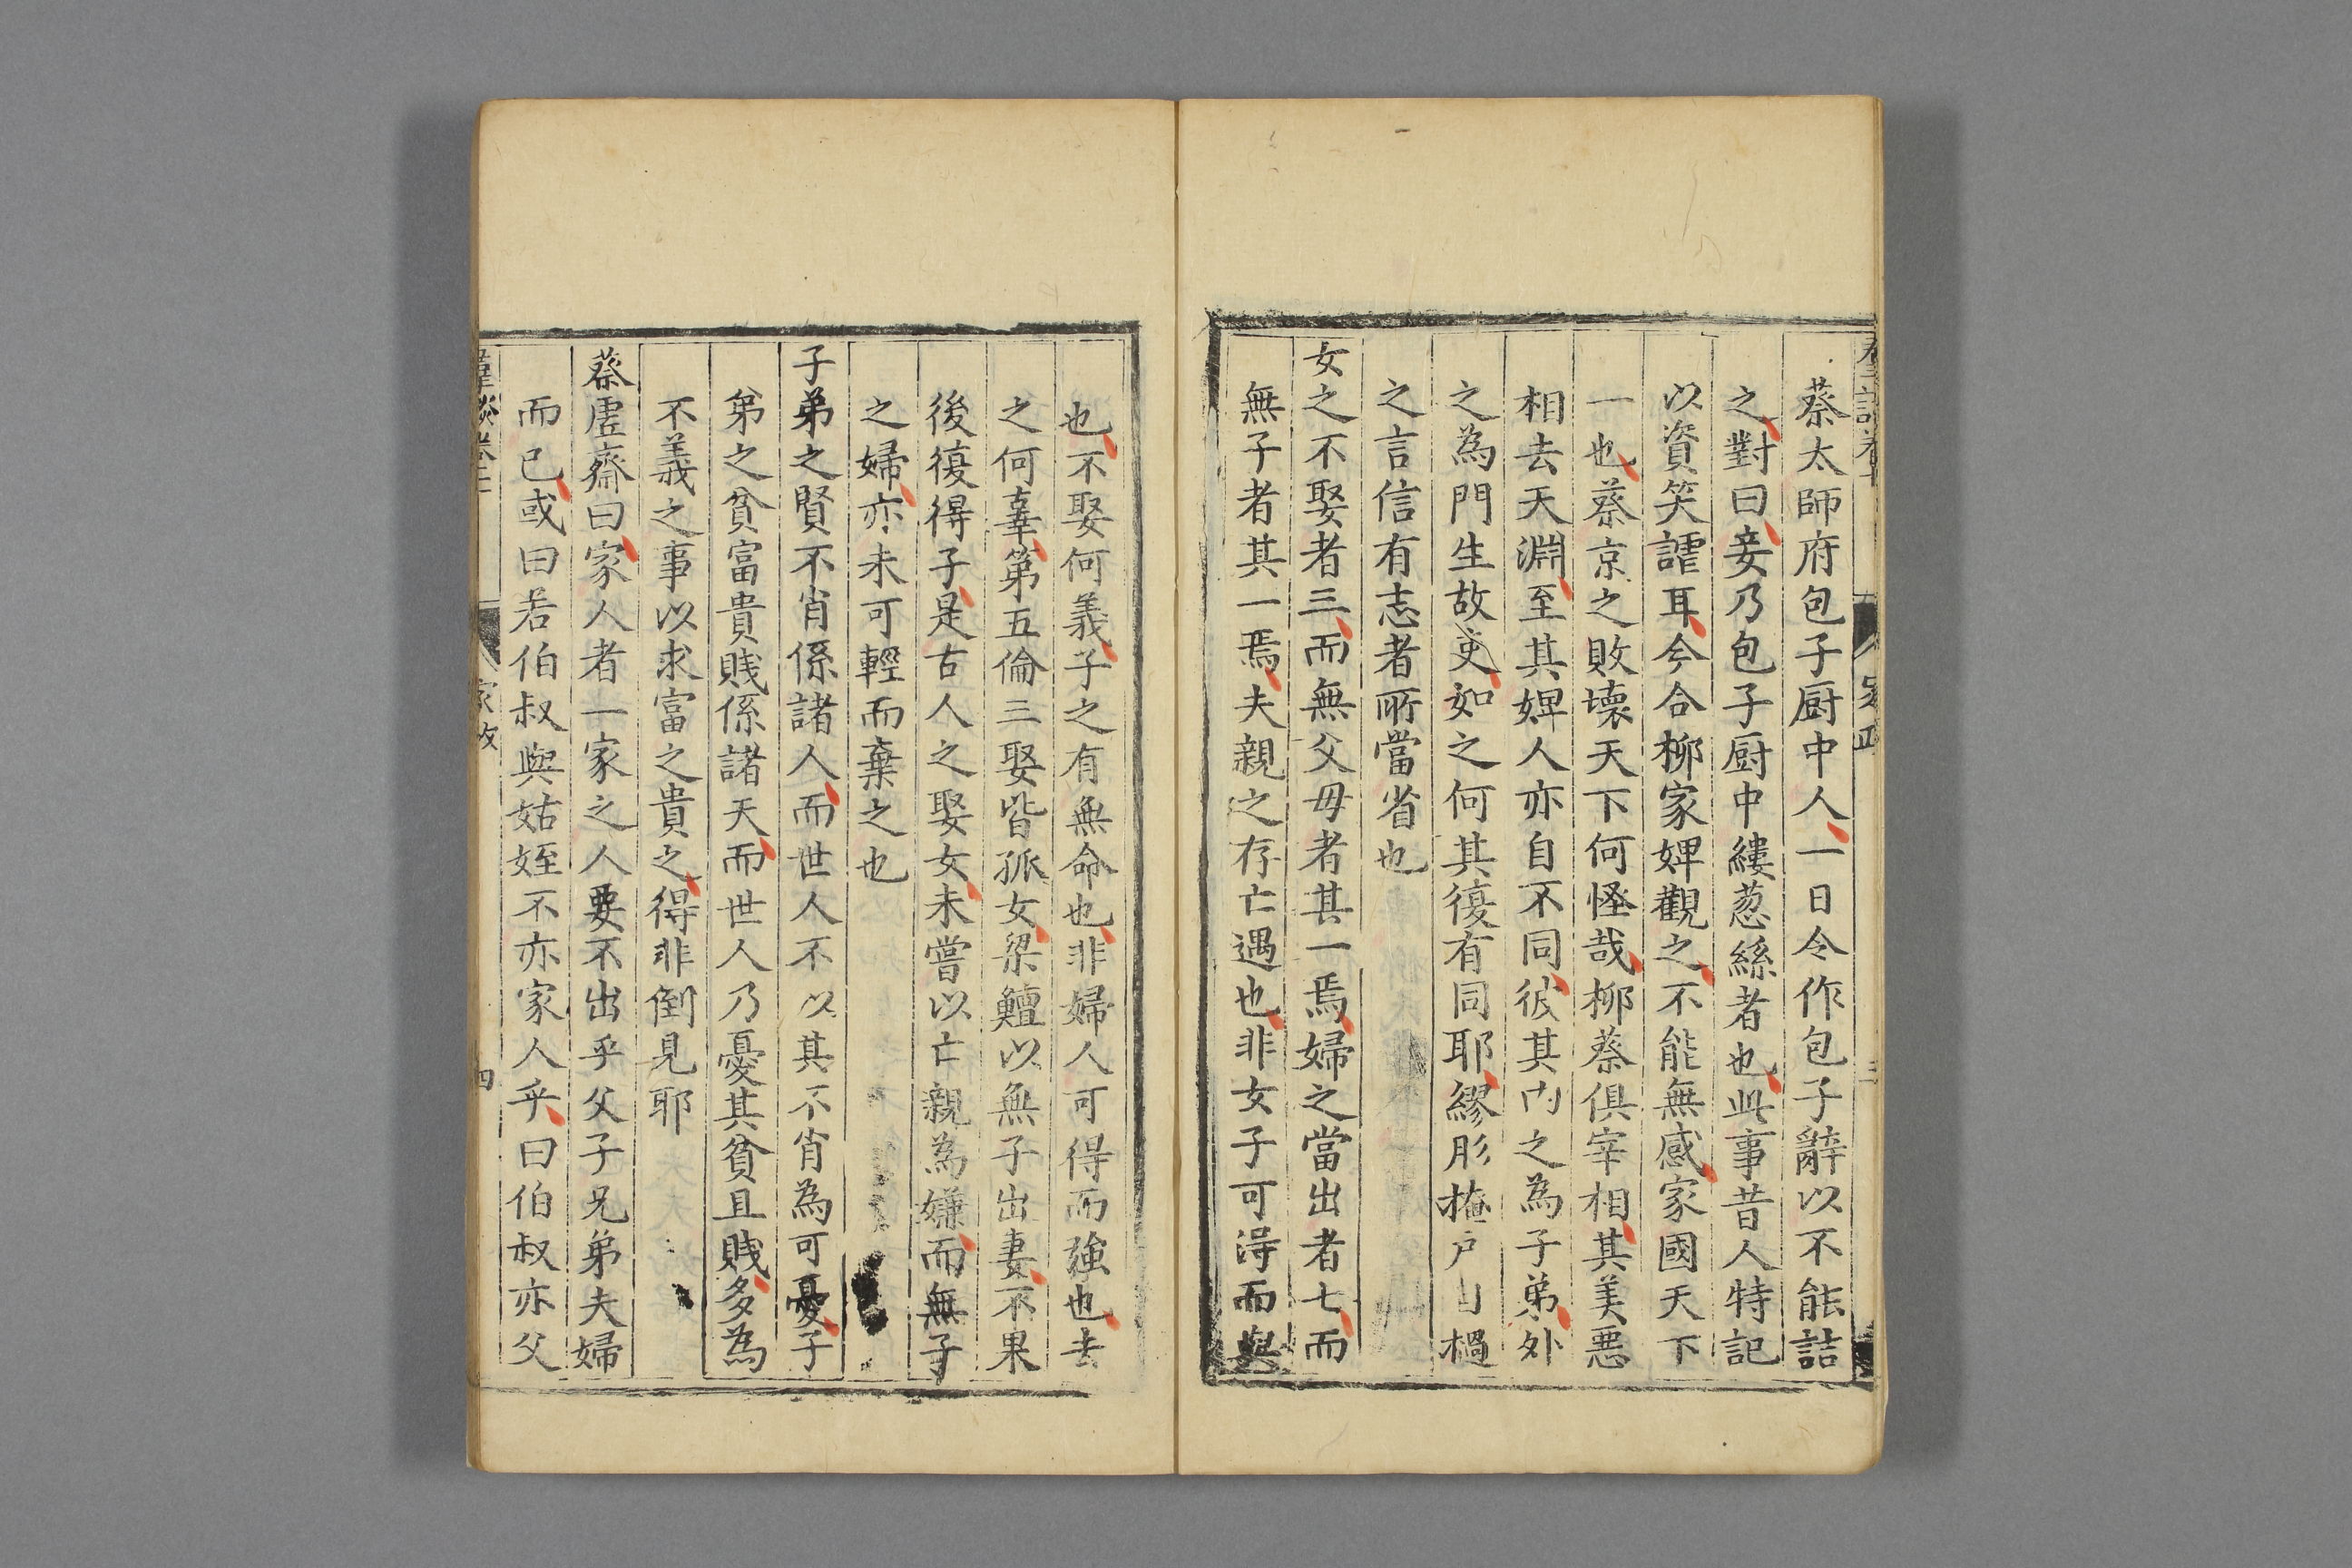 蔡太師府包子厨中人一日令作包子辭以不能詰
之對曰妾乃包子厨中縷葱絲者也此事昔人特記
以資笑謔耳今合柳家婢觀之不能無感家國天下
一也蔡京之敗壞天下何怪哉柳蔡俱宰相其美悪
相去天淵至其婢人亦自不同彼其內之為子弟外
之為門生故吏如之何其復有同耶繆肜掩戶自撾
之言信有志者所當省也
女之不娶者三而無父母者其一焉婦之當出者七而
無子者其一焉夫親之存亡遇也非女子可淂而與
也不娶何義子之有無命也非婦人可得而強也去
之何辜第五倫三娶皆孤女梁鱣以無子出妻不果
後復得子是古人之娶女未嘗以亡親為嫌而無子
之婦亦未可輕而棄之也
子弟之賢不肖係諸人而世人不以其不肖為可憂子
弟之貧富貴賤係諸天而世人乃憂其貧且賤多為
不義之事以求富之貴之得非倒見耶
蔡虛齋曰家人者一家之人要不出乎父子兄弟夫婦
而已或曰若伯叔與姑姪不亦家人乎曰伯叔亦父
家政
四